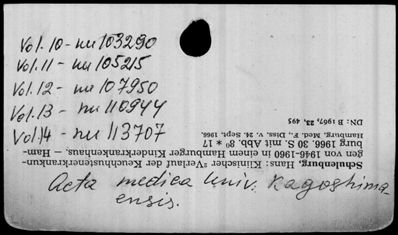 Vol. 10 - nu 103290
Vol. 11 - nu 105215
Vol. 12 - nu 107950
Vol. 13 - nu 110944
Vol. 14 - nu 113707
Acta medica Univ. Kagoshima-
ensis.
Schulenburg, Hans: Klinischer Verlauf der Keuchhustenerkrankun-
gen von 1946-1960 in einem Hamburger Kinderkrankenhaus. — Ham-
burg 1966. 30 S. mit Abb. 8° * 17
Hamburg, Med. F., Diss. v. 24. Sept. 1966.
DN: B 1967, 23, 495